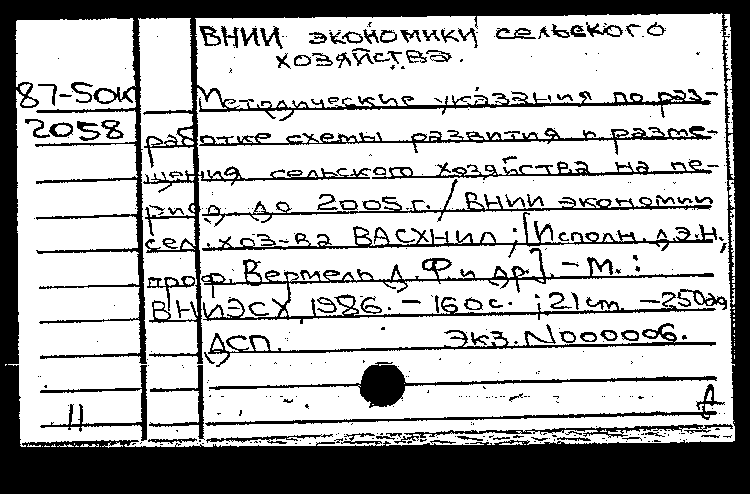 ВНИИ экономики сельского
хозяйства.
87-50к Методические указания по раз-
2058 работке схемы развития и разме-
щения сельского хозяйства на пе-
риод до 2005 г. / ВНИИ экономии
сел. хоз-ва ВАСХНИЛ ; [Исполн. д.э.н.,
проф. Вермель Д. Ф. и др.]. - М. :
ВНИЭСХ, 1986. - 160 с. ; 21 см. - 250 экз
ДСП. Экз. N000006.
11